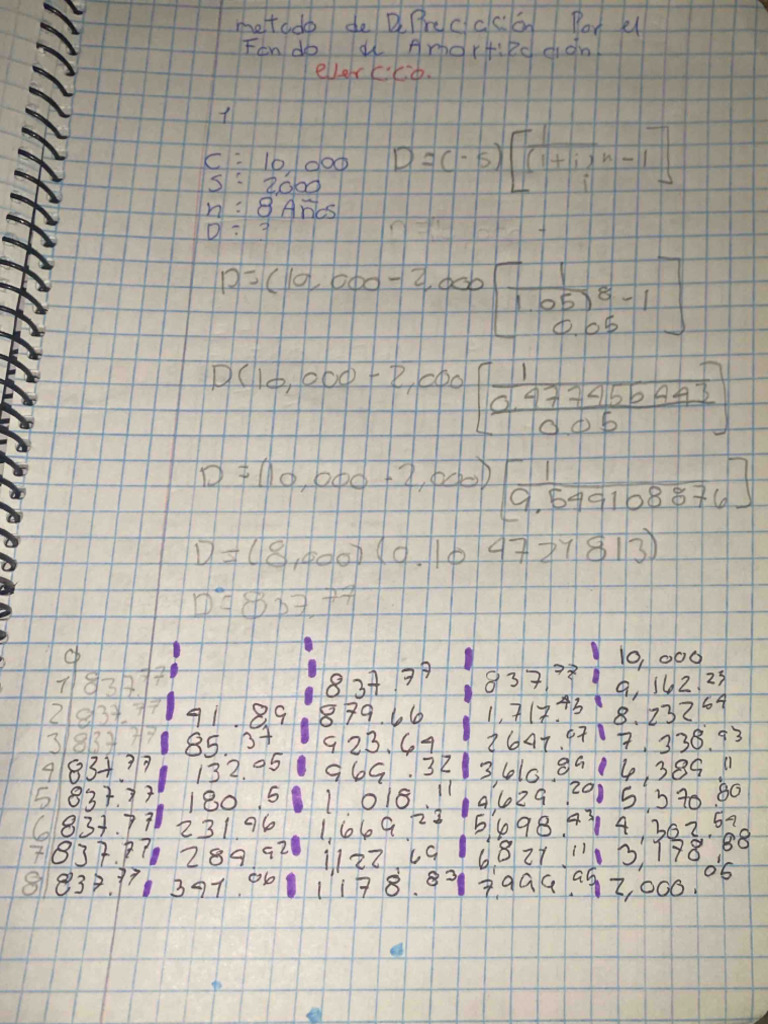 metodo de Depreciación Por el
Fondo de Amortización
ejercicio.
1
C = 10,000
S = 2,000
n = 8 Años
D = ?
D = (-S) [1 / (1+i)n - 1 / i]
D = (10,000 - 2,000 [1 / 1.05)8 - 1 / 0.05]
D (10,000 - 2,000 [1 / 0.477455443 / 0.05]
D = (10,000 - 2,000) [1 / 9.549108876]
D = (8,000) (0.104721813)
D = 837.77
0 10,000
1 837.77 837.77 837.77 9,162.23
2 837.77 41.89 879.66 1,717.43 8.232.64
3 837.77 85.37 923.64 2641.07 7.338.93
4 837.77 132.05 969.32 3,610.89 6,389.11
5 837.77 180.5 1 018.11 4,629.20 5,370.80
6 837.77 231.96 1,669.23 5,698.43 4,302.59
7 837.77 284.92 1,122.69 6,821.11 3,178.88
8 837.77 341.06 1,178.83 7,999.95 2,000.05